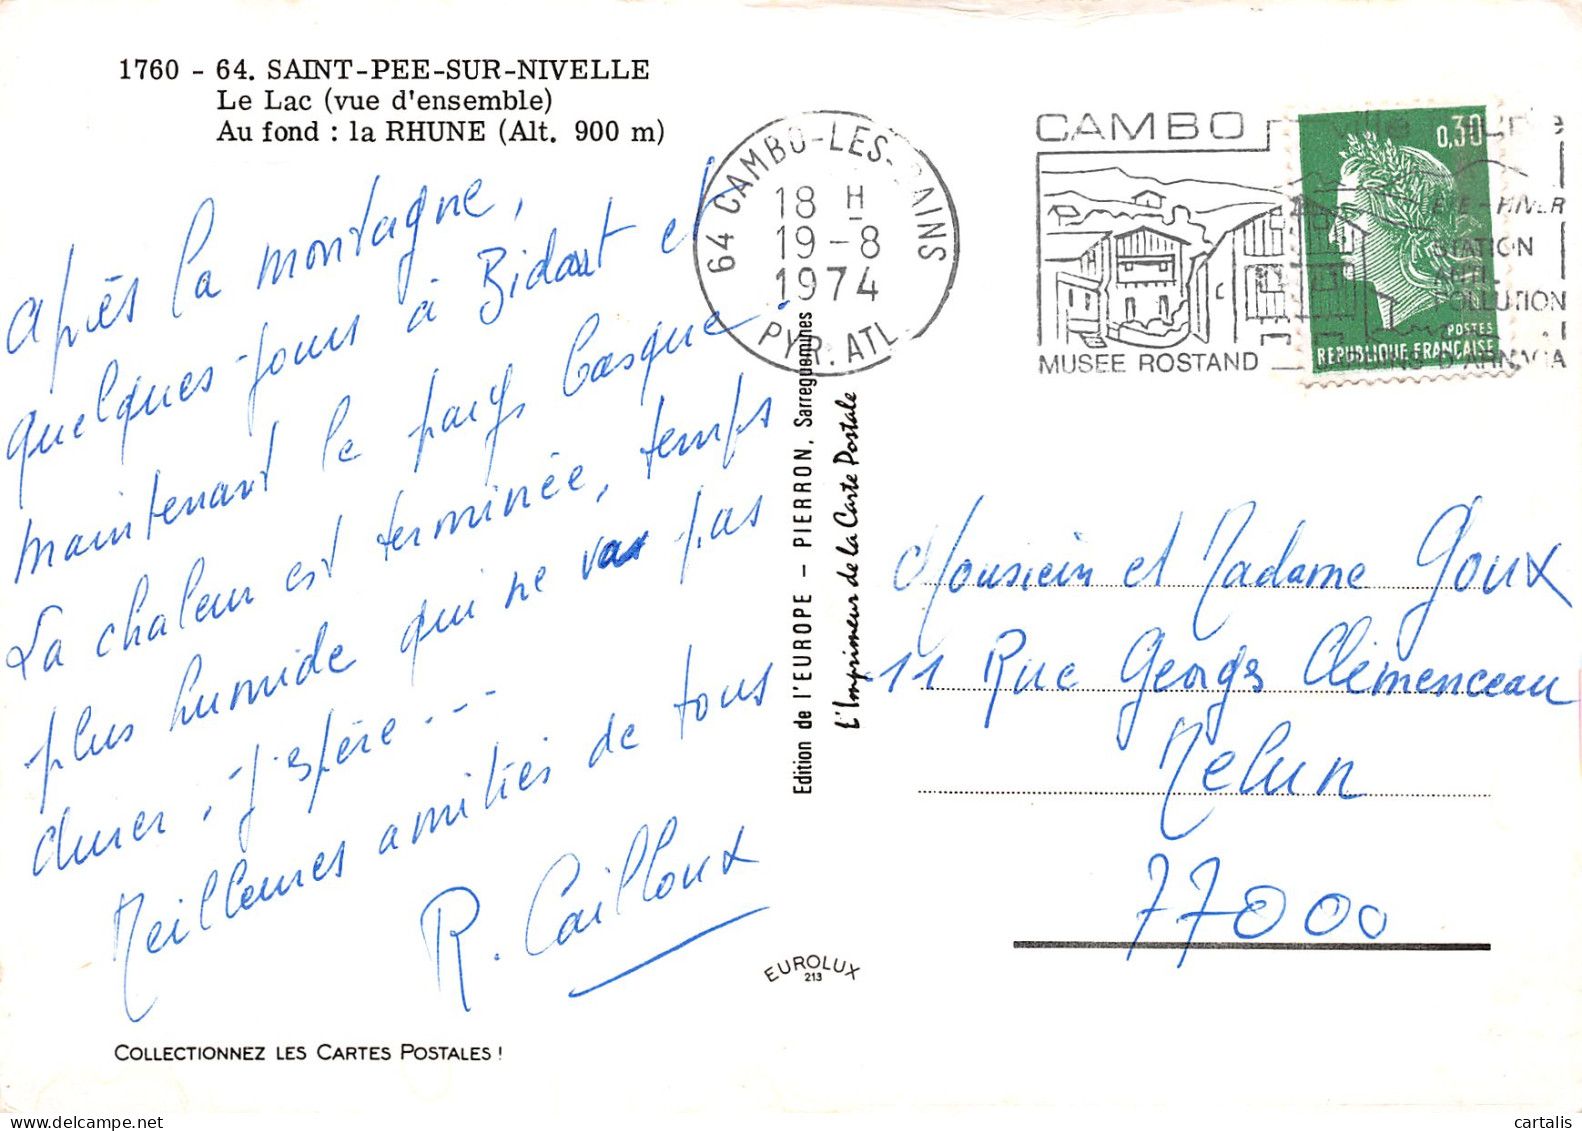 1760 - 64. SAINT-PEE-SUR-NIVELLE
Le Lac (vue d'ensemble)
Au fond : la RHUNE (Alt. 900 m)
Après la montagne,
quelques jours à Bidart et
maintenant le pays basque.
La chaleur est terminée, temps
plus humide qui ne va pas
durer, j'espère...
Meilleures amitiés de tous
R. Cailloux
COLLECTIONNEZ LES CARTES POSTALES !
64 CAMBO-LES-BAINS
18 H
19-8
1974
PYR. ATL.
Edition de l'EUROPE - PIERRON, Sarreguemines
L'Imprimeur de la Carte Postale
EUROLUX
213
CAMBO
ETE - HIVER
STATION
ANTI
POLLUTION
MUSEE ROSTAND
0,30
POSTES
REPUBLIQUE FRANÇAISE
Monsieur et Madame Goux
11 Rue Georges Clémenceau
Melun
77000
cartalis